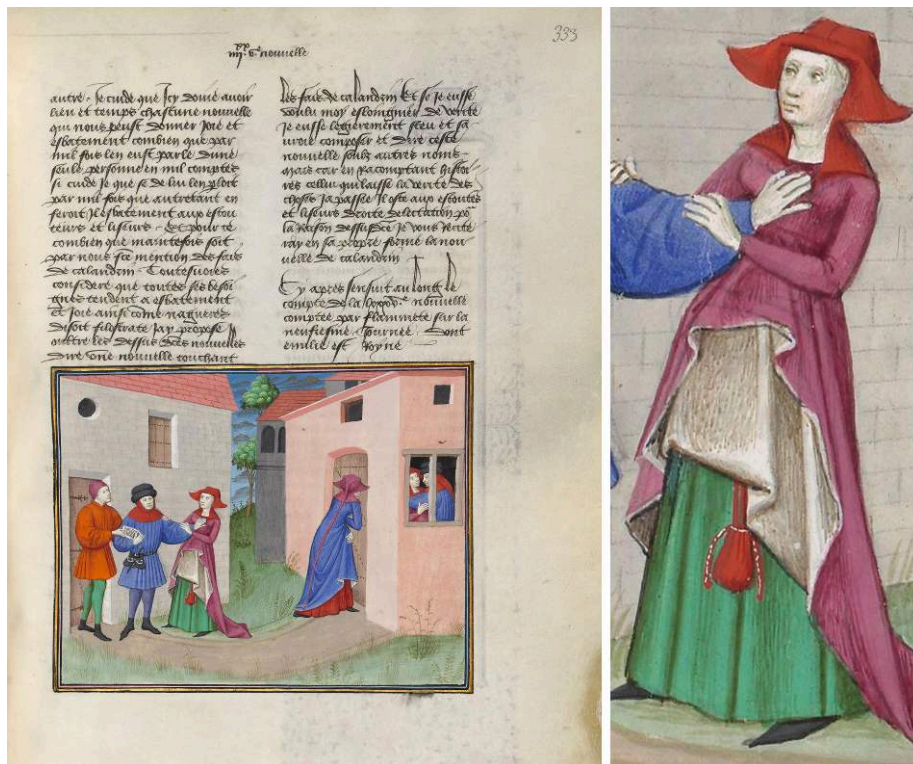 333
nouvelle
autre. Je cuide que Icy doiue auoir
lieu et temps chascune nouuelle
qui nous peust donner Joie et
esbatement combien que par
mil fois len eust parle dune
seule personne en mil comptes
si cuide Je que se de lui len ploit
par mil fois que autretant en
feroit Il esbatement aux escou
teurs et liseurs. Et pour ce
combien que maintefois soit
par nous fce mention des fais
de calandrin Toutesuoies
considere que toutes ses besoi
gnes tendent a esbatement
et Joie ainsi come nagueres
disoit filistrate Jay propose
oultre les dessus des nouuelles
dire vne nouuelle touchant
les fais de calandrin Et se Je eusse
voulu moy eslongnier de verite
Je eusse legierement sceu et sa
uroie composer et dire ceste
nouuelle soubz autres noms
mais car en racomptant histoi
res cellui qui laisse la verite des
choses Ja passees Il oste aux escouteurs
et liseurs delectation po
la Raison dessusdice Je vous Recite
ray en sa propre forme la nou
uelle de calandrin
Cy apres sensuit au long le
compte de la nouuelle
comptee par flammete sur la
neufiesme Journee dont
emilie est Royne